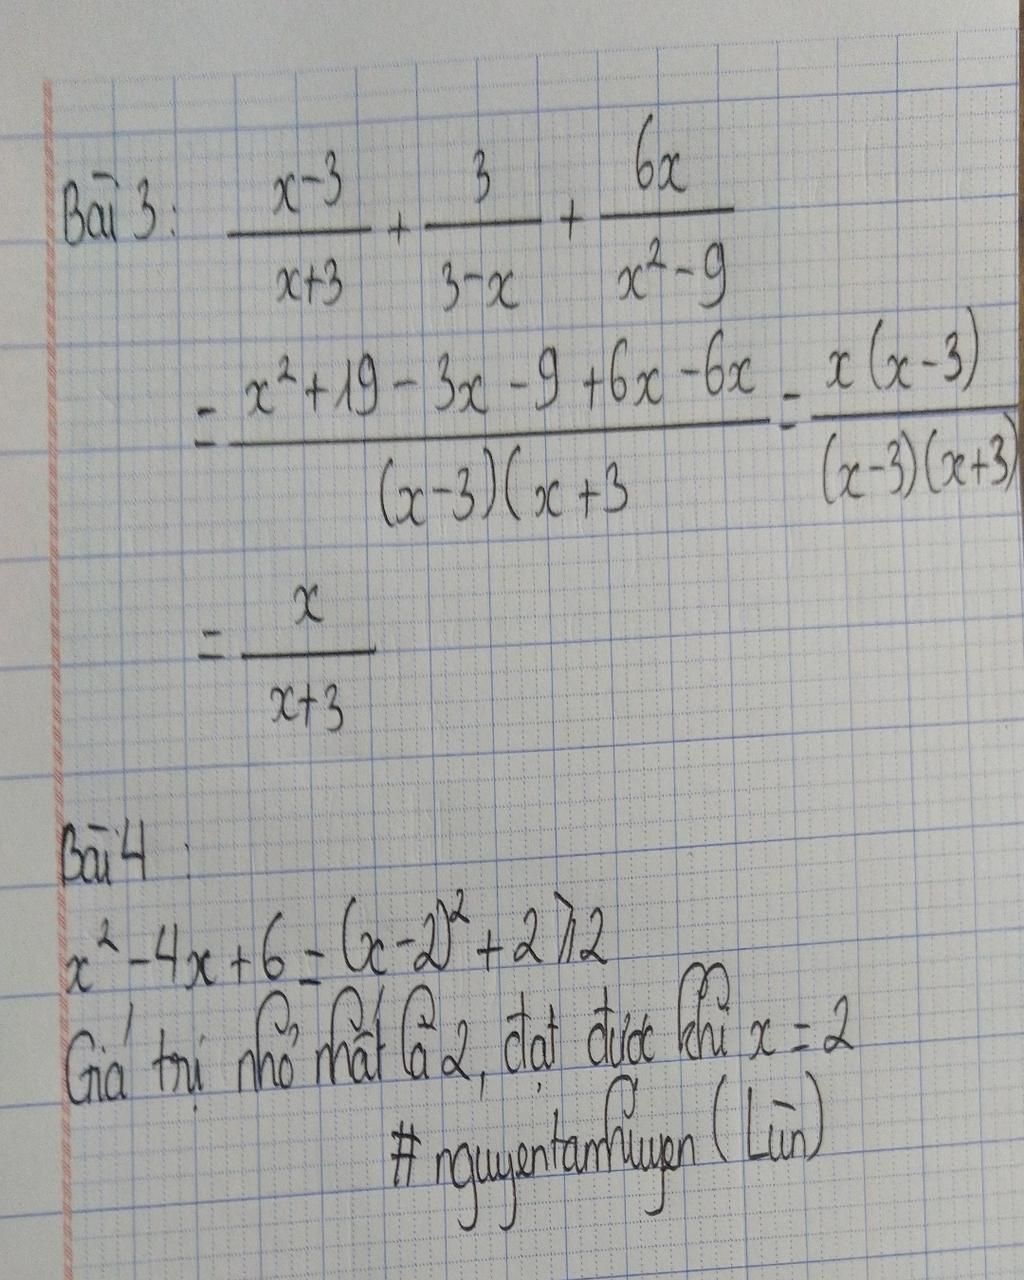 Bài 3: x-3/x+3 + 3/3-x + 6x/x²-9
= x²+19-3x-9+6x-6x/(x-3)(x+3 = x(x-3)/(x-3)(x+3)
= x/x+3
Bài 4:
x²-4x+6=(x-2)²+2⩾2
Giá trị nhỏ nhất là 2, đạt được khi x=2
#nguyentamhuyen (Lùn)